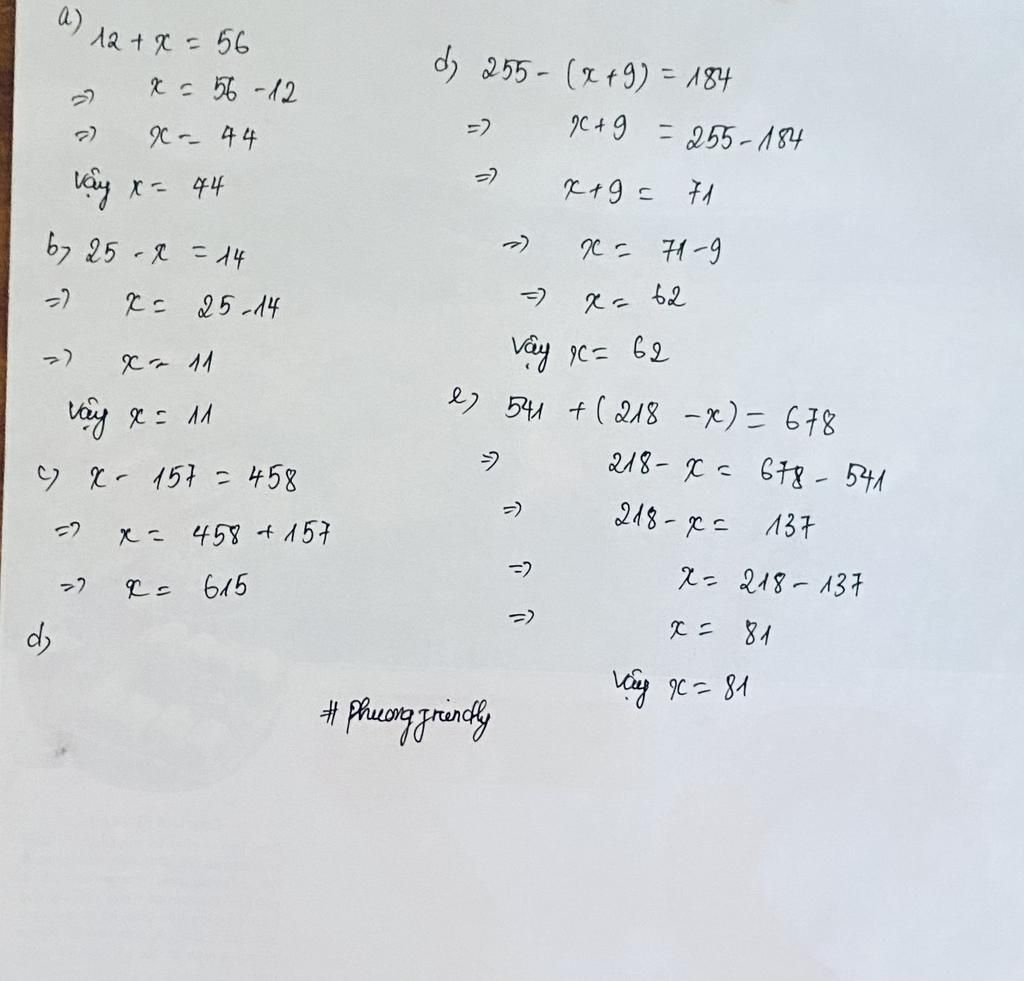 a)
12 + x = 56
=> x = 56 - 12
=> x = 44
Vậy x = 44
b) 25 - x = 14
=> x = 25 - 14
=> x = 11
Vậy x = 11
c) x - 157 = 458
=> x = 458 + 157
=> x = 615
d)
d) 255 - (x + 9) = 184
=> x + 9 = 255 - 184
=> x + 9 = 71
=> x = 71 - 9
=> x = 62
Vậy x = 62
e) 541 + (218 - x) = 678
=> 218 - x = 678 - 541
=> 218 - x = 137
=> x = 218 - 137
=> x = 81
Vậy x = 81
# phuongfriendly